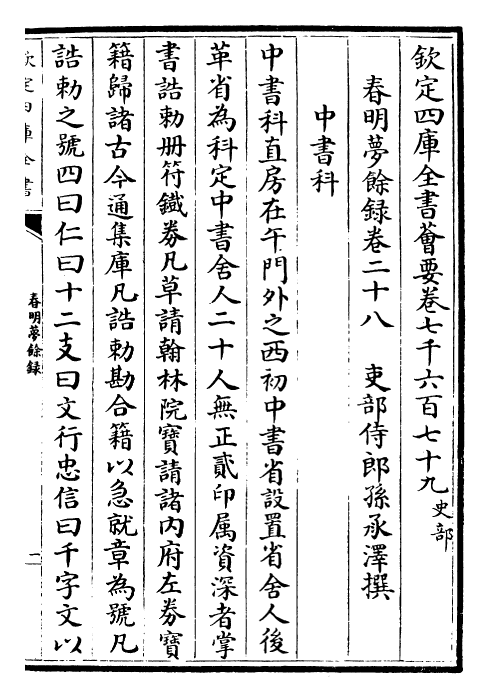 欽定四庫全書薈要卷七千六百七十九 史部
春明夢餘録卷二十八 吏部侍郎孫承澤撰
中書科
中書科直房在午門外之西初中書省設置省舍人後
革省為科定中書舍人二十人無正貳印属資深者掌
書誥勅册符鐵劵凡草請翰林院寶請諸内府左劵寶
籍歸諸古今通集庫凡誥勅勘合籍以急就章為號凡
誥勅之號四曰仁曰十二支曰文行忠信曰千字文以
欽定四庫全書
春明夢餘録